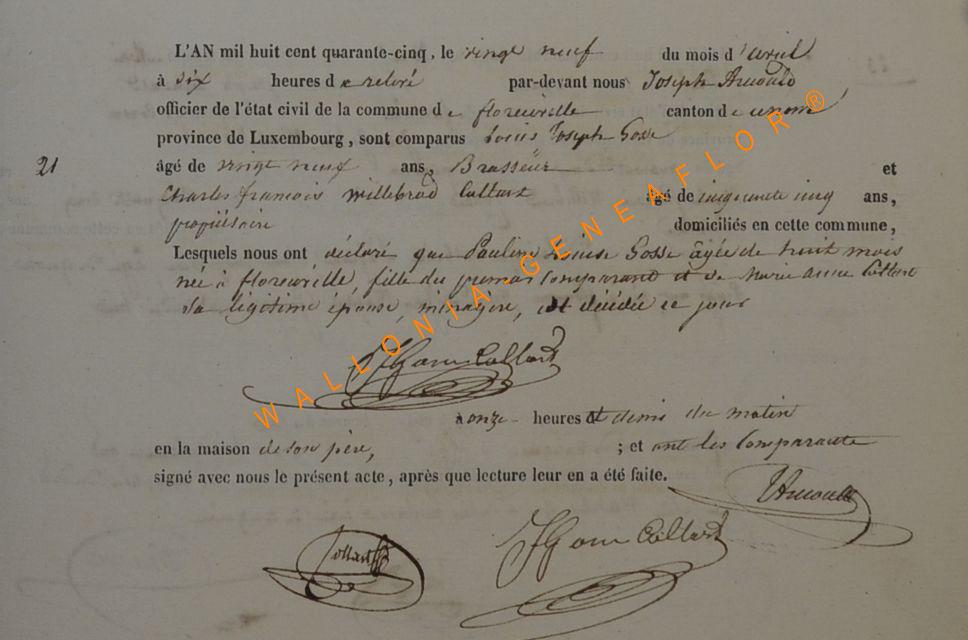 L'AN mil huit cent quarante-cinq, le vingt neuf du mois d'avril
à six heures de relevé par-devant nous Joseph Arnould,
officier de l'état civil de la commune de florenville canton de
province de Luxembourg, sont comparus Louis Joseph Gosse
21 âgé de vingt neuf ans, Brasseur et
Charles francois Willebrod Collart âgé de cinquante cinq ans,
propriétaire domiciliés en cette commune,
Lesquels nous ont déclaré que Pauline Louise Gosse âgée de huit mois
née à florenville, fille du premier Comparant et de Marie anne Collart
sa légitime épouse, ménagère, est décédée ce jour
Collart
à onze heures et demis du matin
en la maison de son père, ; et ont les Comparants
signé avec nous le présent acte, après que lecture leur en a été faite.
JArnould
Collart Collart
WALLONIA - GENEAFLOR ®